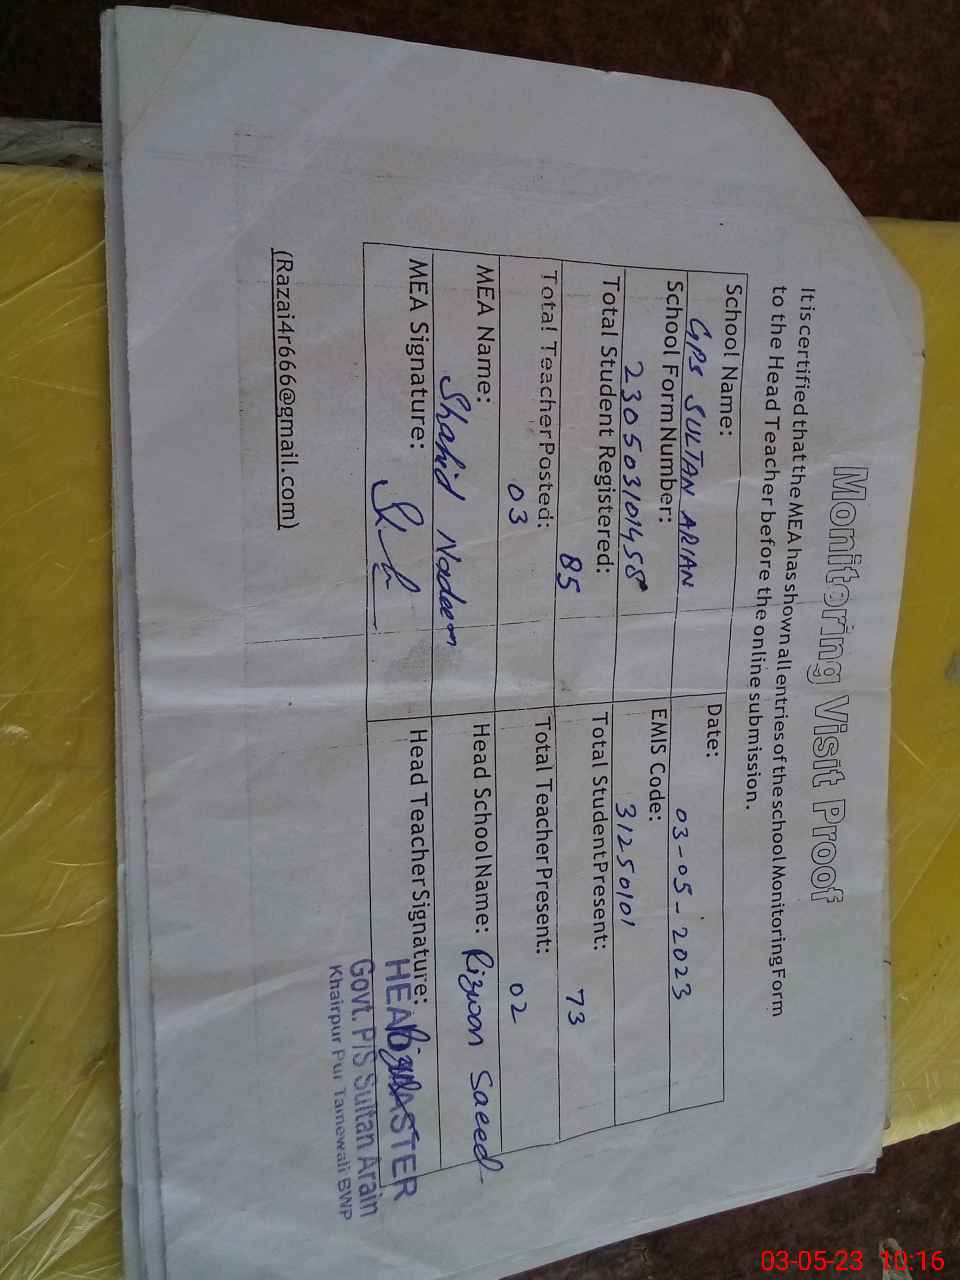 Monitoring Visit Proof
It is certified that the MEA has shown all entries of the school Monitoring Form
to the Head Teacher before the online submission.
School Name: GPS SULTAN ARIAN
Date: 03-05-2023
School Form Number: 230503101458
EMIS Code: 31250101
Total Student Registered: 85
Total Student Present: 73
Total Teacher Posted: 03
Total Teacher Present: 02
MEA Name: Shahid Nadeem
Head School Name: Rizwan Saeed
MEA Signature:
Head Teacher Signature:
HEADMASTER
Govt. P/S Sultan Arain
Khairpur Pur Tamewali BWP
(Razai4r666@gmail.com)
03-05-23 10:16